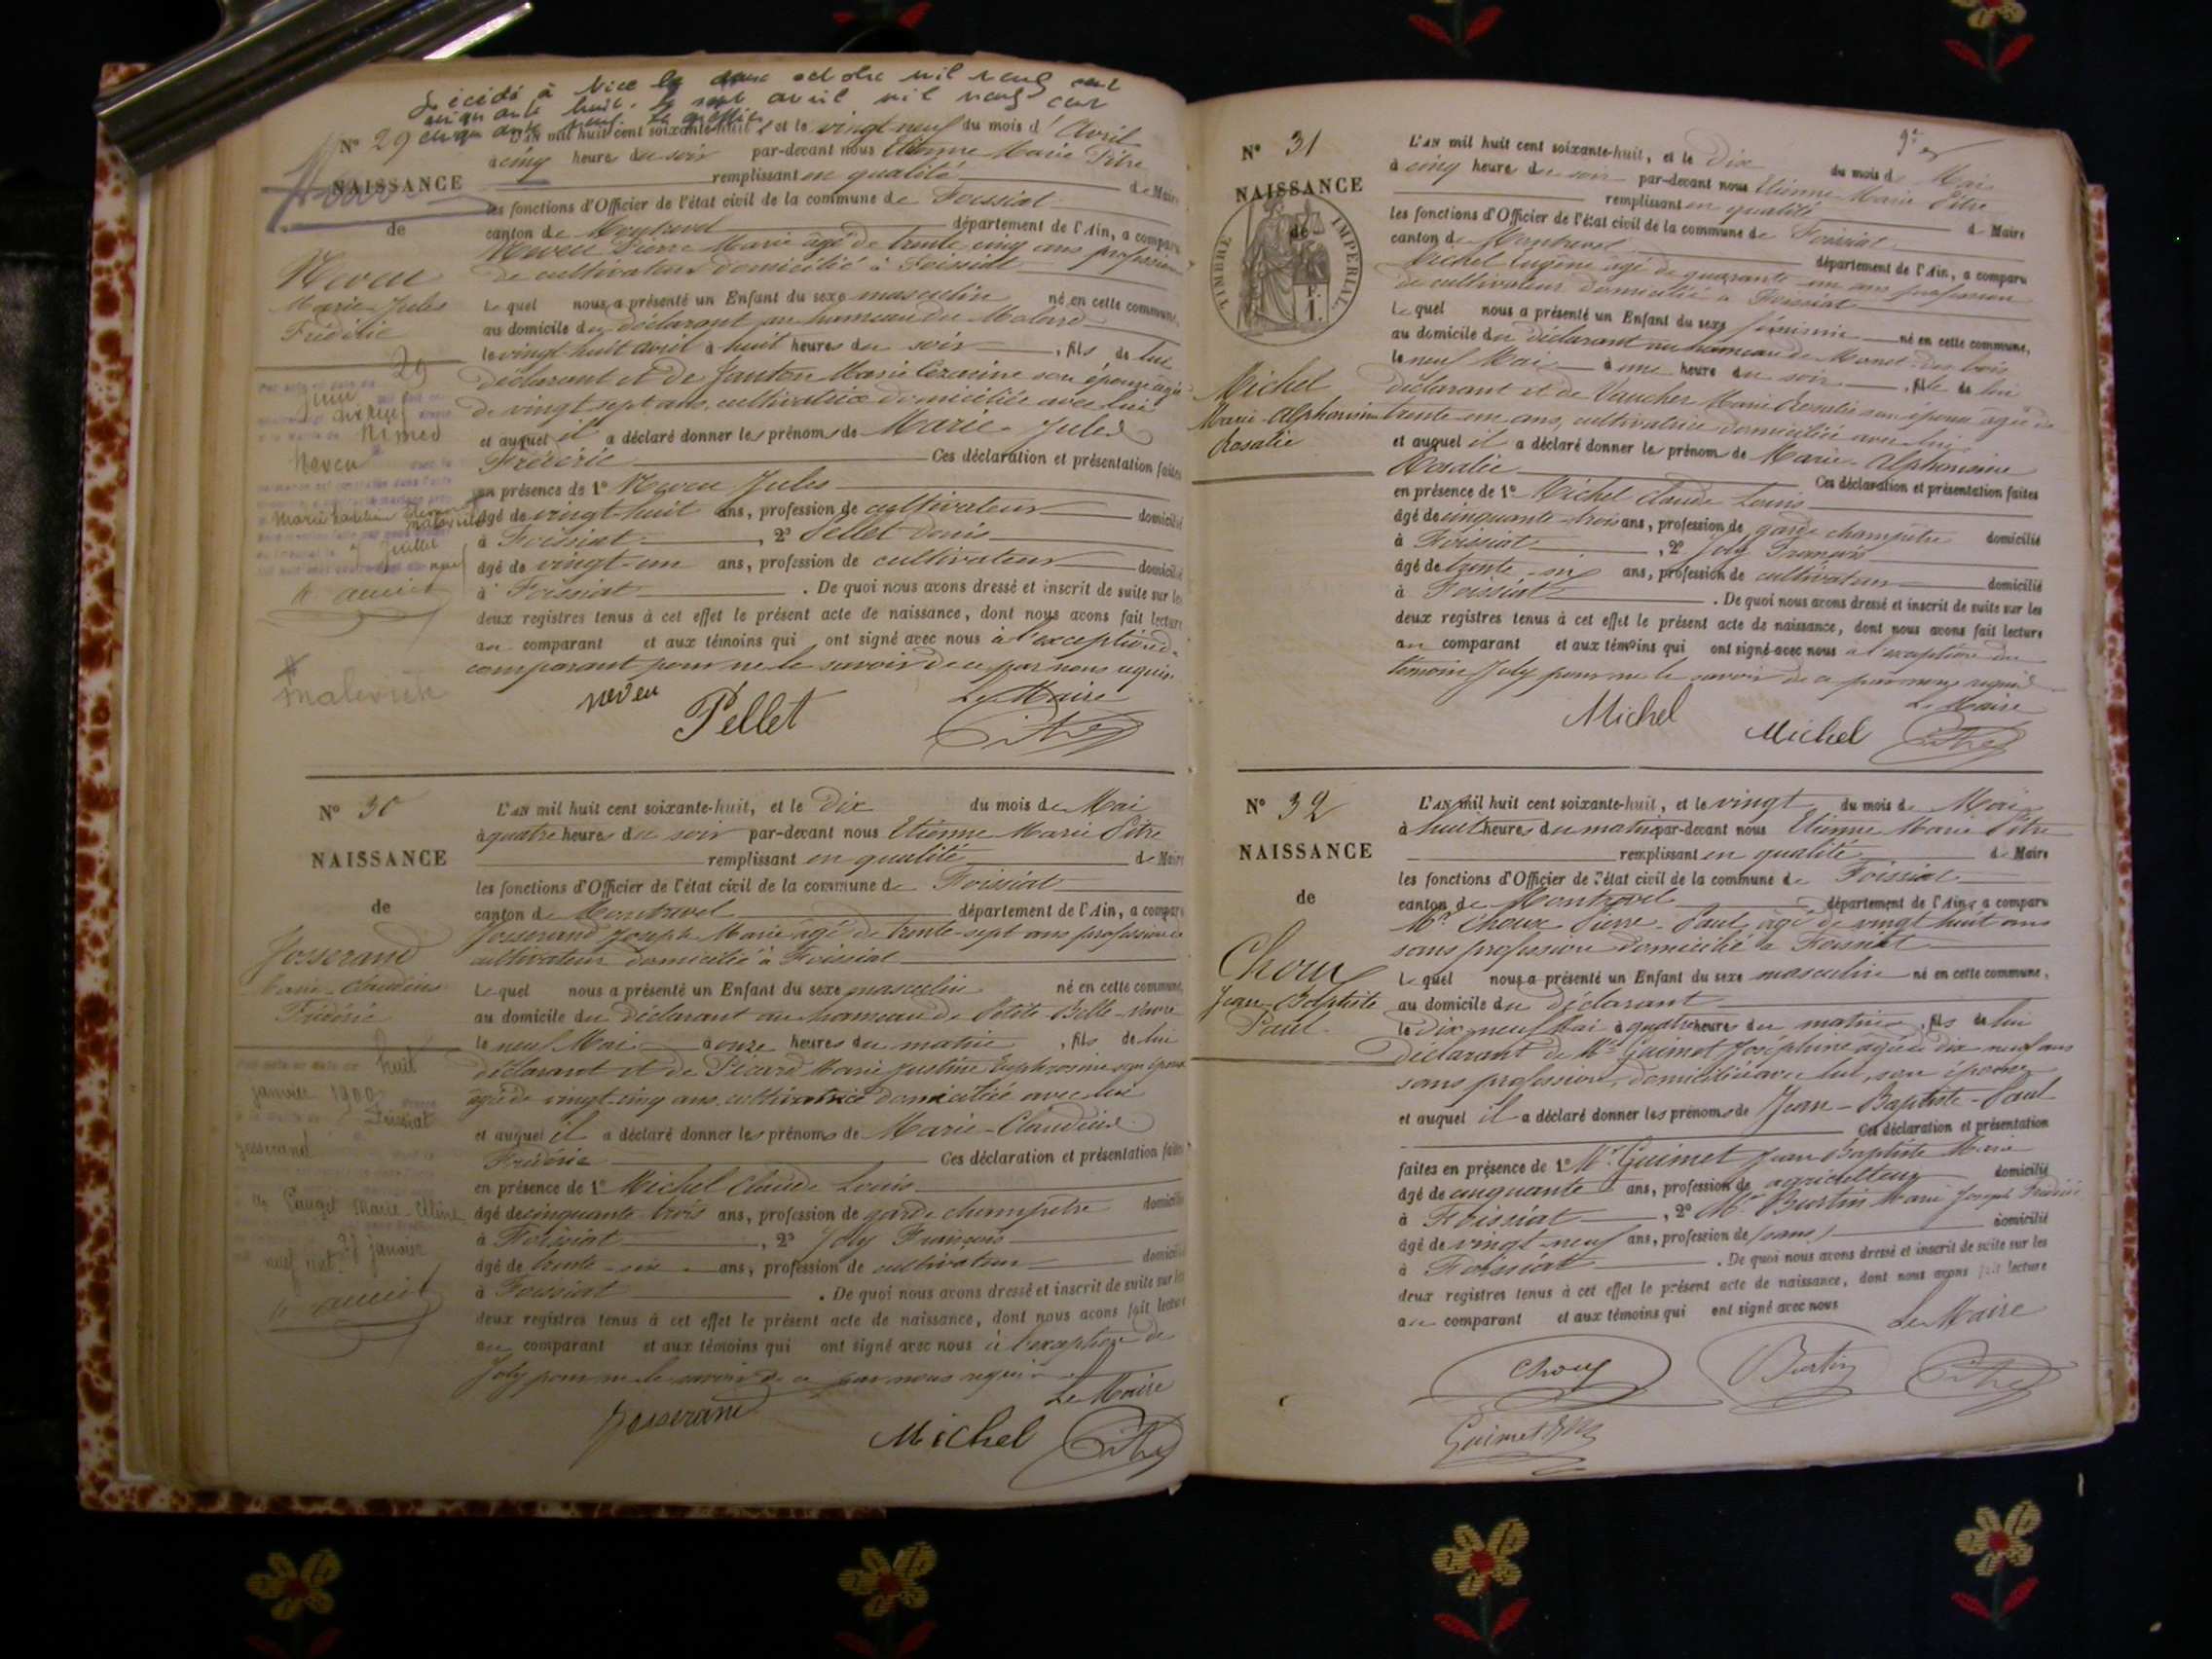 Décédé à Nice le octobre mil neuf cent
cinquante huit. Le sept avril mil neuf cent
cinquante neuf. Le greffier
N° 29
L'AN mil huit cent soixante-huit, et le vingt-neuf du mois d'Avril
à cinq heures du soir par-devant nous Etienne Marie Pitre
remplissant en qualité de Maire
les fonctions d'Officier de l'état civil de la commune de Foissiat
canton de Montrevel département de l'Ain, a comparu
Neveu Pierre Marie âgé de trente cinq ans profession
de cultivateur domicilié à Foissiat
Lequel nous a présenté un Enfant du sexe masculin né en cette commune,
au domicile du déclarant au hameau du Molard
le vingt-huit avril à huit heures du soir , fils de lui
déclarant et de Janton Marie son épouse agée
de vingt sept ans, cultivatrice domiciliée avec lui
et auquel il a déclaré donner les prénoms de Marie-Jules
Frédéric Ces déclaration et présentation faites
en présence de 1° Neveu Jules
âgé de vingt-huit ans, profession de cultivateur domicilié
à Foissiat , 2° Pellet Denis
âgé de vingt-un ans, profession de cultivateur domicilié
à Foissiat . De quoi nous avons dressé et inscrit de suite sur les
deux registres tenus à cet effet le présent acte de naissance, dont nous avons fait lecture
au comparant et aux témoins qui ont signé avec nous à l'exception du
comparant pour ne le savoir de ce par nous requis
Le Maire
neveu
Pellet
Pitre
NAISSANCE
de
Neveu
Marie-Jules
Frédéric
29
Juin
Nimes
Neveu
Juillet
Malevirie
N° 30
NAISSANCE
de
Josserand
Marie-Claudius
Frédéric
huit
janvier 1900
Foissiat
Josserand
Pauget Marie-Céline
neuf cent
janvier
L'AN mil huit cent soixante-huit, et le Dix du mois de Mai
à quatre heures du soir par-devant nous Etienne Marie Pitre
remplissant en qualité de Maire
les fonctions d'Officier de l'état civil de la commune de Foissiat
canton de Montrevel département de l'Ain, a comparu
Josserand Joseph Marie âgé de trente-sept ans profession de
cultivateur domicilié à Foissiat
Lequel nous a présenté un Enfant du sexe masculin né en cette commune,
au domicile du déclarant au hameau de Petite-Belle-
le neuf Mai à onze heures du matin , fils de lui
déclarant et de Picard Marie Justine Euphrosine son épouse
agée de vingt-cinq ans, cultivatrice domiciliée avec lui
et auquel il a déclaré donner les prénoms de Marie-Claudius
Frédéric Ces déclaration et présentation faites
en présence de 1° Michel Claude Louis
âgé de cinquante-trois ans, profession de garde champêtre domicilié
à Foissiat , 2° Joly François
âgé de trente-six ans, profession de cultivateur domicilié
à Foissiat . De quoi nous avons dressé et inscrit de suite sur les
deux registres tenus à cet effet le présent acte de naissance, dont nous avons fait lecture
au comparant et aux témoins qui ont signé avec nous à l'exception de
Joly pour ne le savoir de ce par nous requis
Le Maire
Josserand
Michel
Pitre
9e
N° 31
NAISSANCE
de
TIMBRE IMPERIAL
Michel
Marie-Alphonsine
Rosalie
L'AN mil huit cent soixante-huit, et le Dix du mois de Mai
à cinq heures du soir par-devant nous Etienne Marie Pitre
remplissant en qualité de Maire
les fonctions d'Officier de l'état civil de la commune de Foissiat
canton de Montrevel département de l'Ain, a comparu
Michel Eugène âgé de quarante-un ans profession
de cultivateur domicilié à Foissiat
Lequel nous a présenté un Enfant du sexe féminin né en cette commune,
au domicile du déclarant au hameau de des bois
le neuf Mai à une heure du soir , fille de lui
déclarant et de Vaucher Marie Rosalie son épouse âgée de
trente-un ans, cultivatrice domiciliée avec lui
et auquel il a déclaré donner les prénoms de Marie-Alphonsine
Rosalie Ces déclaration et présentation faites
en présence de 1° Michel Claude Louis
âgé de cinquante-trois ans, profession de garde champêtre domicilié
à Foissiat , 2° Joly François
âgé de trente-six ans, profession de cultivateur domicilié
à Foissiat . De quoi nous avons dressé et inscrit de suite sur les
deux registres tenus à cet effet le présent acte de naissance, dont nous avons fait lecture
au comparant et aux témoins qui ont signé avec nous à l'exception du
témoin Joly pour ne le savoir de ce par nous requis
Le Maire
Michel
Michel
Pitre
N° 32
NAISSANCE
de
Choux
Jean-Baptiste
Paul
L'AN mil huit cent soixante-huit, et le vingt du mois de Mai
à huit heures du matin par-devant nous Etienne Marie Pitre
remplissant en qualité de Maire
les fonctions d'Officier de l'état civil de la commune de Foissiat
canton de Montrevel département de l'Ain, a comparu
Mr Choux Pierre-Paul âgé de vingt huit ans
sans profession domicilié à Foissiat
Lequel nous a présenté un Enfant du sexe masculin né en cette commune,
au domicile du déclarant
le dix-neuf Mai à quatre heures du matin , fils de lui
déclarant de Guimet Joséphine agée de dix neuf ans
sans profession, domiciliée avec lui, son épouse
et auquel il a déclaré donner les prénoms de Jean-Baptiste-Paul
Ces déclaration et présentation
faites en présence de 1° Mr Guimet Jean Baptiste Marie
âgé de cinquante ans, profession de agriculteur domicilié
à Foissiat , 2° Mr Burtin Marie Joseph Frédéric
âgé de vingt-neuf ans, profession de (sans) domicilié
à Foissiat . De quoi nous avons dressé et inscrit de suite sur les
deux registres tenus à cet effet le présent acte de naissance, dont nous avons fait lecture
au comparant et aux témoins qui ont signé avec nous
Le Maire
Choux
Burtin
Pitre
Guimet